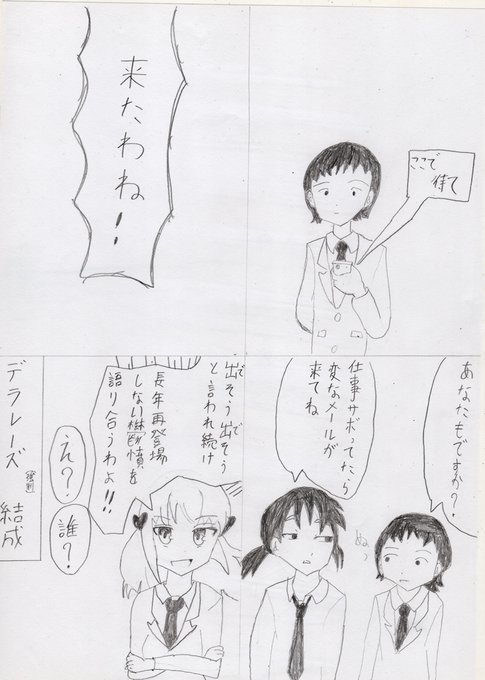 ここで
待て
来たわね！
あなたもですか？
仕事サボってたら
変なメールが
来てね
出そう出そう
と言われ続け
長年再登場
しない鬱憤を
語り合うわよ!!
え？
誰？
デラレーズ（強制）結成